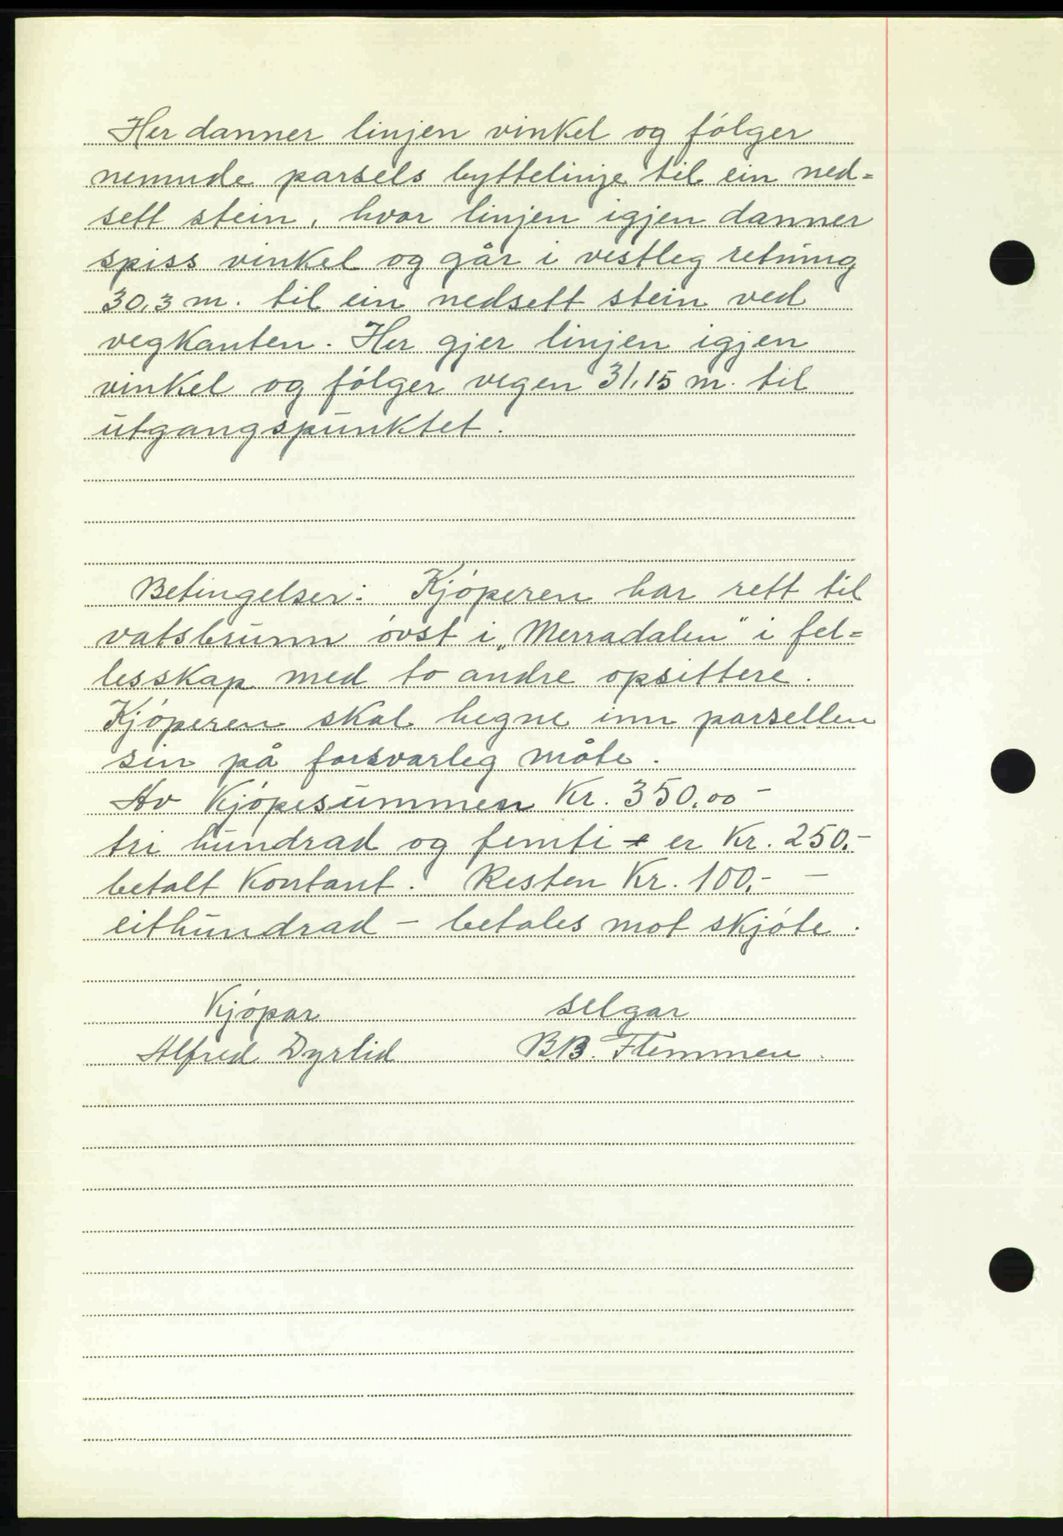 Her danner linjen vinkel og fólger
nemnde parsels byttelinje til ein ned=
sett stein, hvor linjen igjen danner
spiss vinkel og går i vestleg retning
30,3 m. til ein nedsett stein ved
vegkanten. Her gjer linjen igjen
vinkel og fólger vegen 31,15 m. til
utgangspunktet.
Betingelser: Kjóperen har rett til
vatsbrunn óvst i „Merradalen" i fel=
lesskap med to andre opsittere.
Kjóperen skal hegne inn parsellen
sin på forsvarleg måte.
Av Kjópesummen Kr. 350,00 -
tri hundrad og femti - er Kr. 250,-
betalt kontant. Resten Kr. 100,- -
eithundrad - betales mot skjóte.
Kjópar selgar
Alfred Dyrlid B.B. Flemmen.